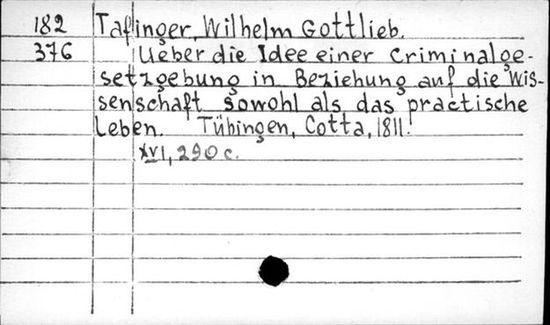 182 Tafinger, Wilhelm Gottlieb.
376 Ueber die Idee einer Criminalge-
setzgebung in Beziehung auf die Wis-
senschaft sowohl als das practische
Leben. Tübingen, Cotta, 1811.
XVI, 290 c.